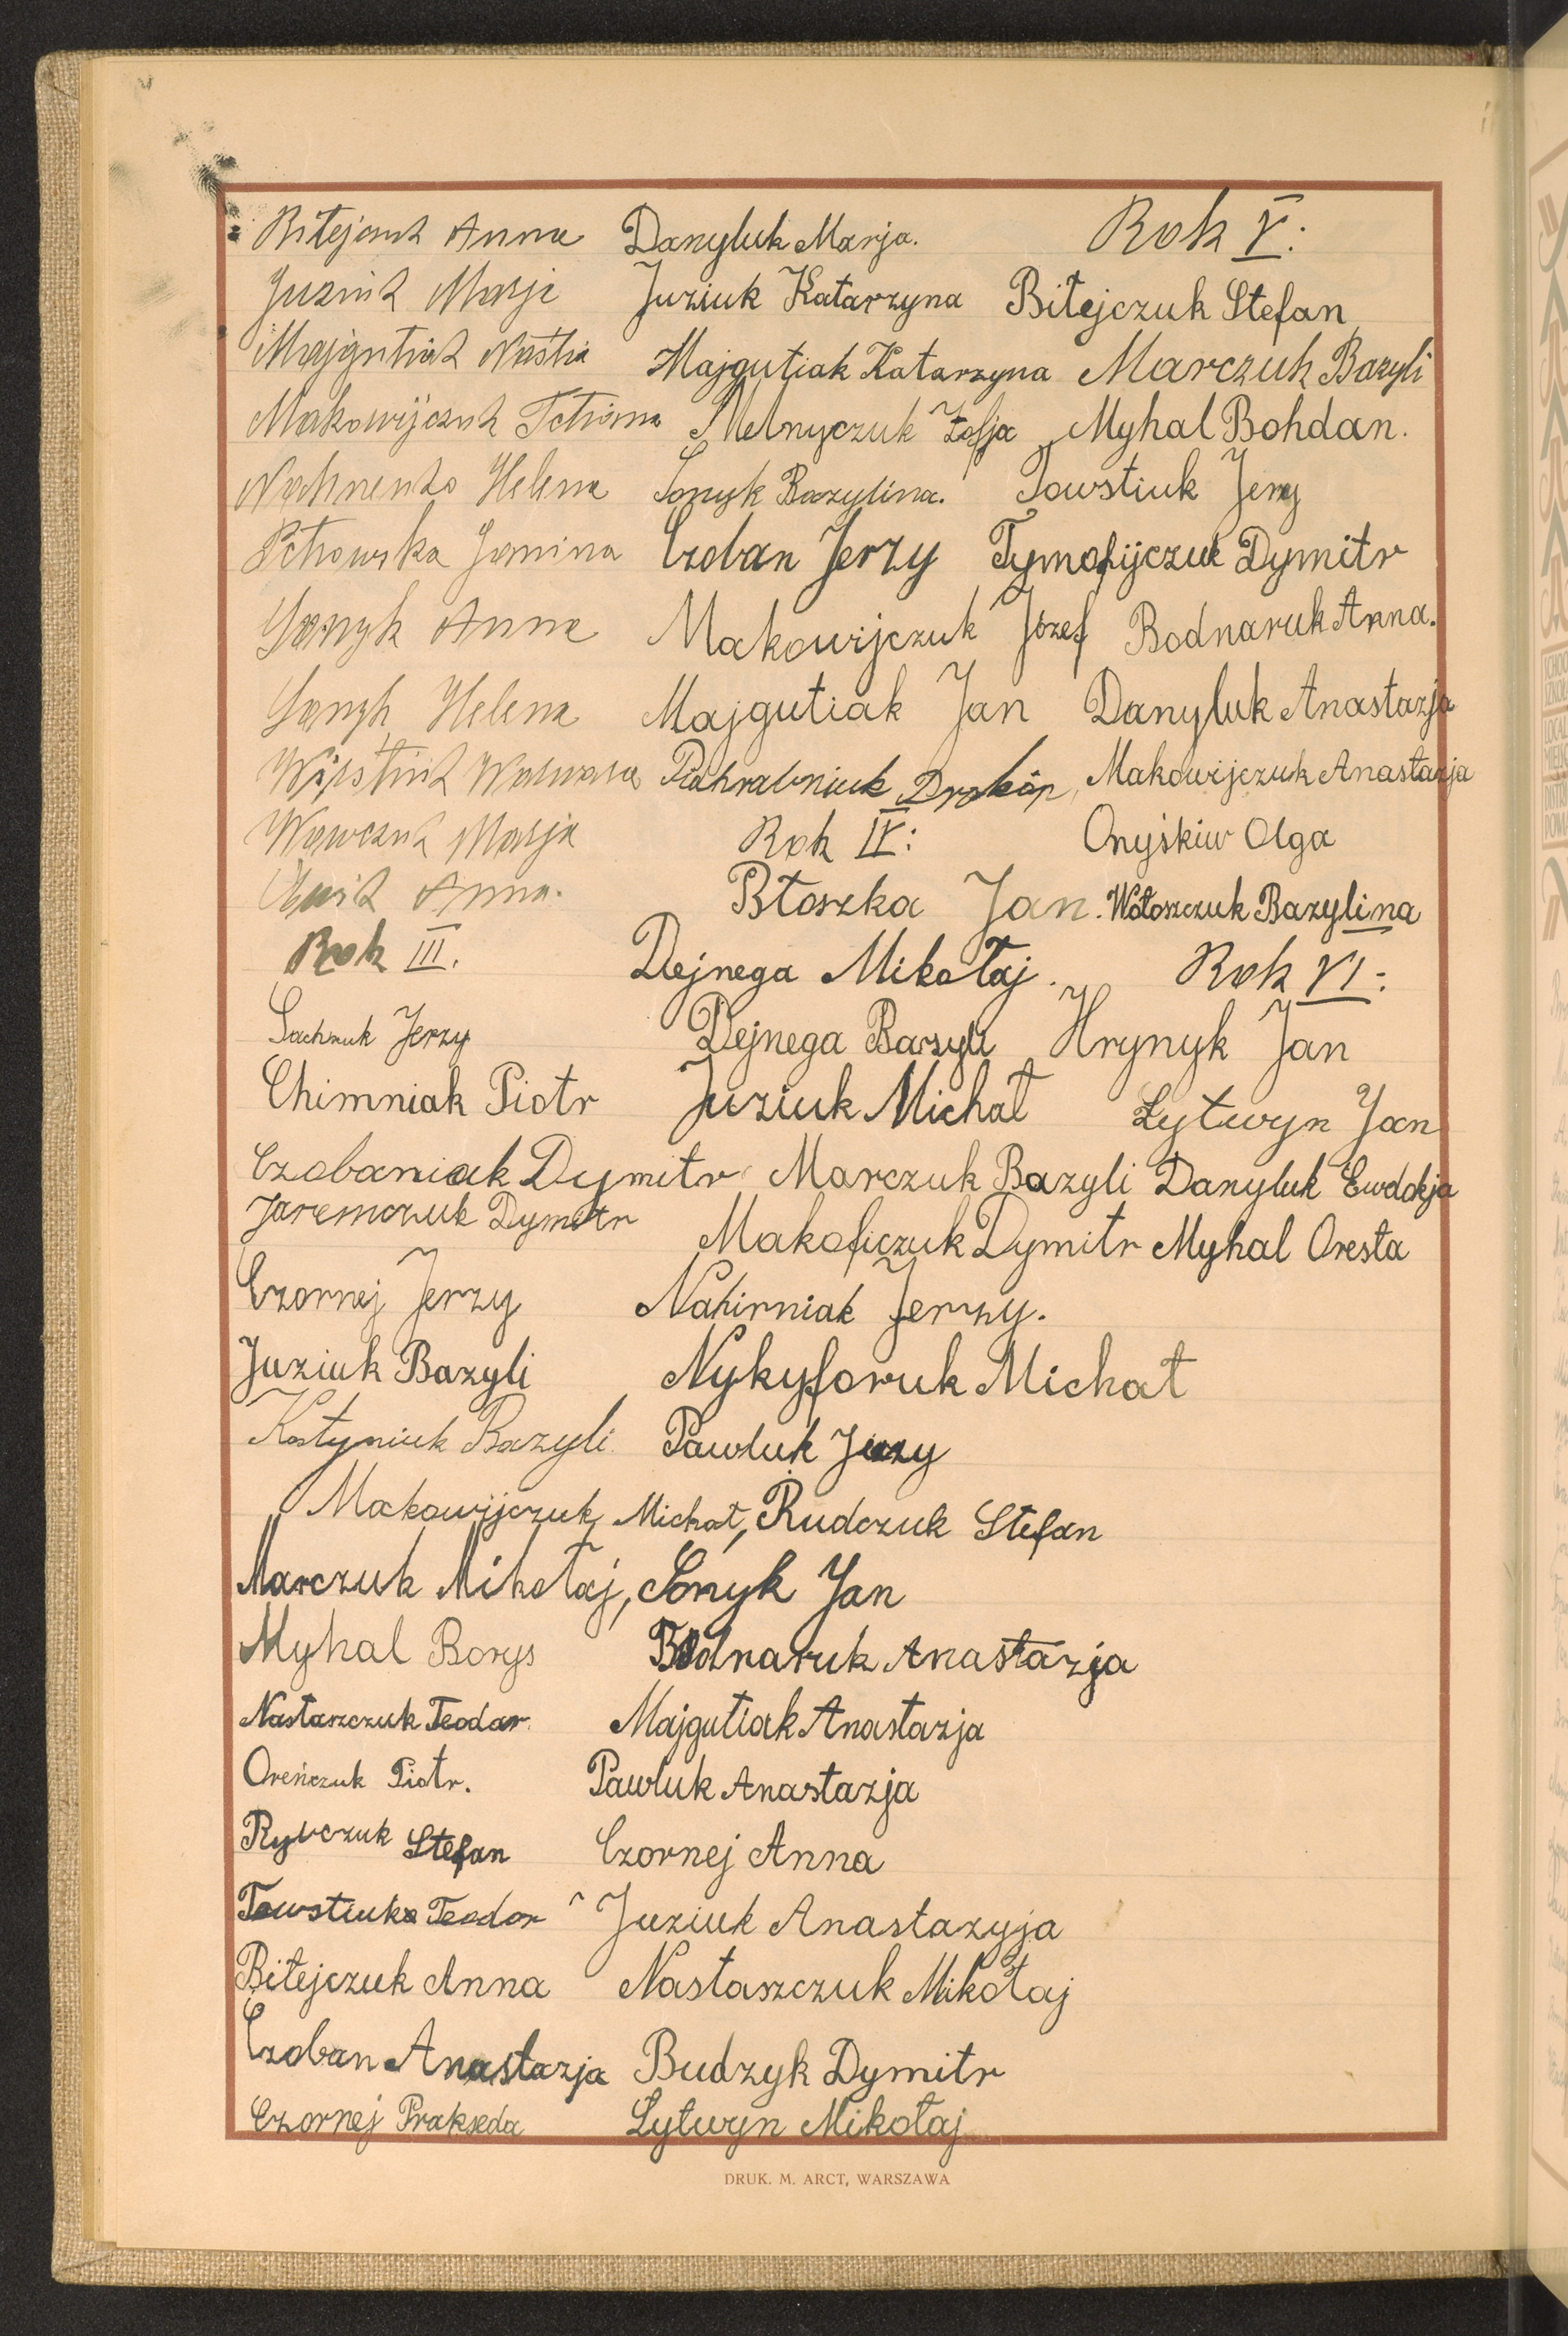 Biłejczuk Anna
Juziuk Marja
Majgutiak Nastia
Makowijczuk Tetiana
Helena
Petrowska Janina
Sonyk Anna
Sonyk Helena
Wawczuk Marja
Anna.
Rok III.
Sachruk Jerzy
Chimniak Piotr
Czobaniak Dymitr
Jaremczuk Dymitr
Czornej Jerzy
Juziuk Bazyli
Kostyniuk Bazyli
Makowijczuk Michał,
Marczuk Mikołaj,
Myhal Borys
Nastaszczuk Teodor
Oreńczuk Piotr.
Rybczuk Stefan
Towstiuk Teodor
Biłejczuk Anna
Czoban Anastazja
Czornej Prakseda
Danyluk Marja.
Juziuk Katarzyna
Majgutiak Katarzyna
Melnyczuk Zofja
Sonyk Bazylina.
Czoban Jerzy
Makowijczuk Józef
Majgutiak Jan
Prokóp,
Rok IV:
Błoszka Jan.
Dejnega Mikołaj.
Dejnega Bazyli
Juziuk Michał
Marczuk Bazyli
Makoficzuk Dymitr
Nahirniak Jerzy.
Nykyforuk Michał
Pawluk Jerzy
Rudczuk Stefan
Sonyk Jan
Bodnaruk Anastazja
Majgutiak Anastazja
Pawluk Anastazja
Czornej Anna
Juziuk Anastazyja
Nastaszczuk Mikołaj
Budzyk Dymitr
Lytwyn Mikołaj
Rok V:
Biłejczuk Stefan
Marczuk Bazyli
Myhal Bohdan.
Towstiuk Jerzy
Tymofijczuk Dymitr
Bodnaruk Anna.
Danyluk Anastazja
Makowijczuk Anastazja
Onyśkiw Olga
Wołoszczuk Bazylina
Rok VI:
Hrynyk Jan
Lytwyn Jan
Danyluk Ewdokja
Myhal Oresta
DRUK. M. ARCT, WARSZAWA